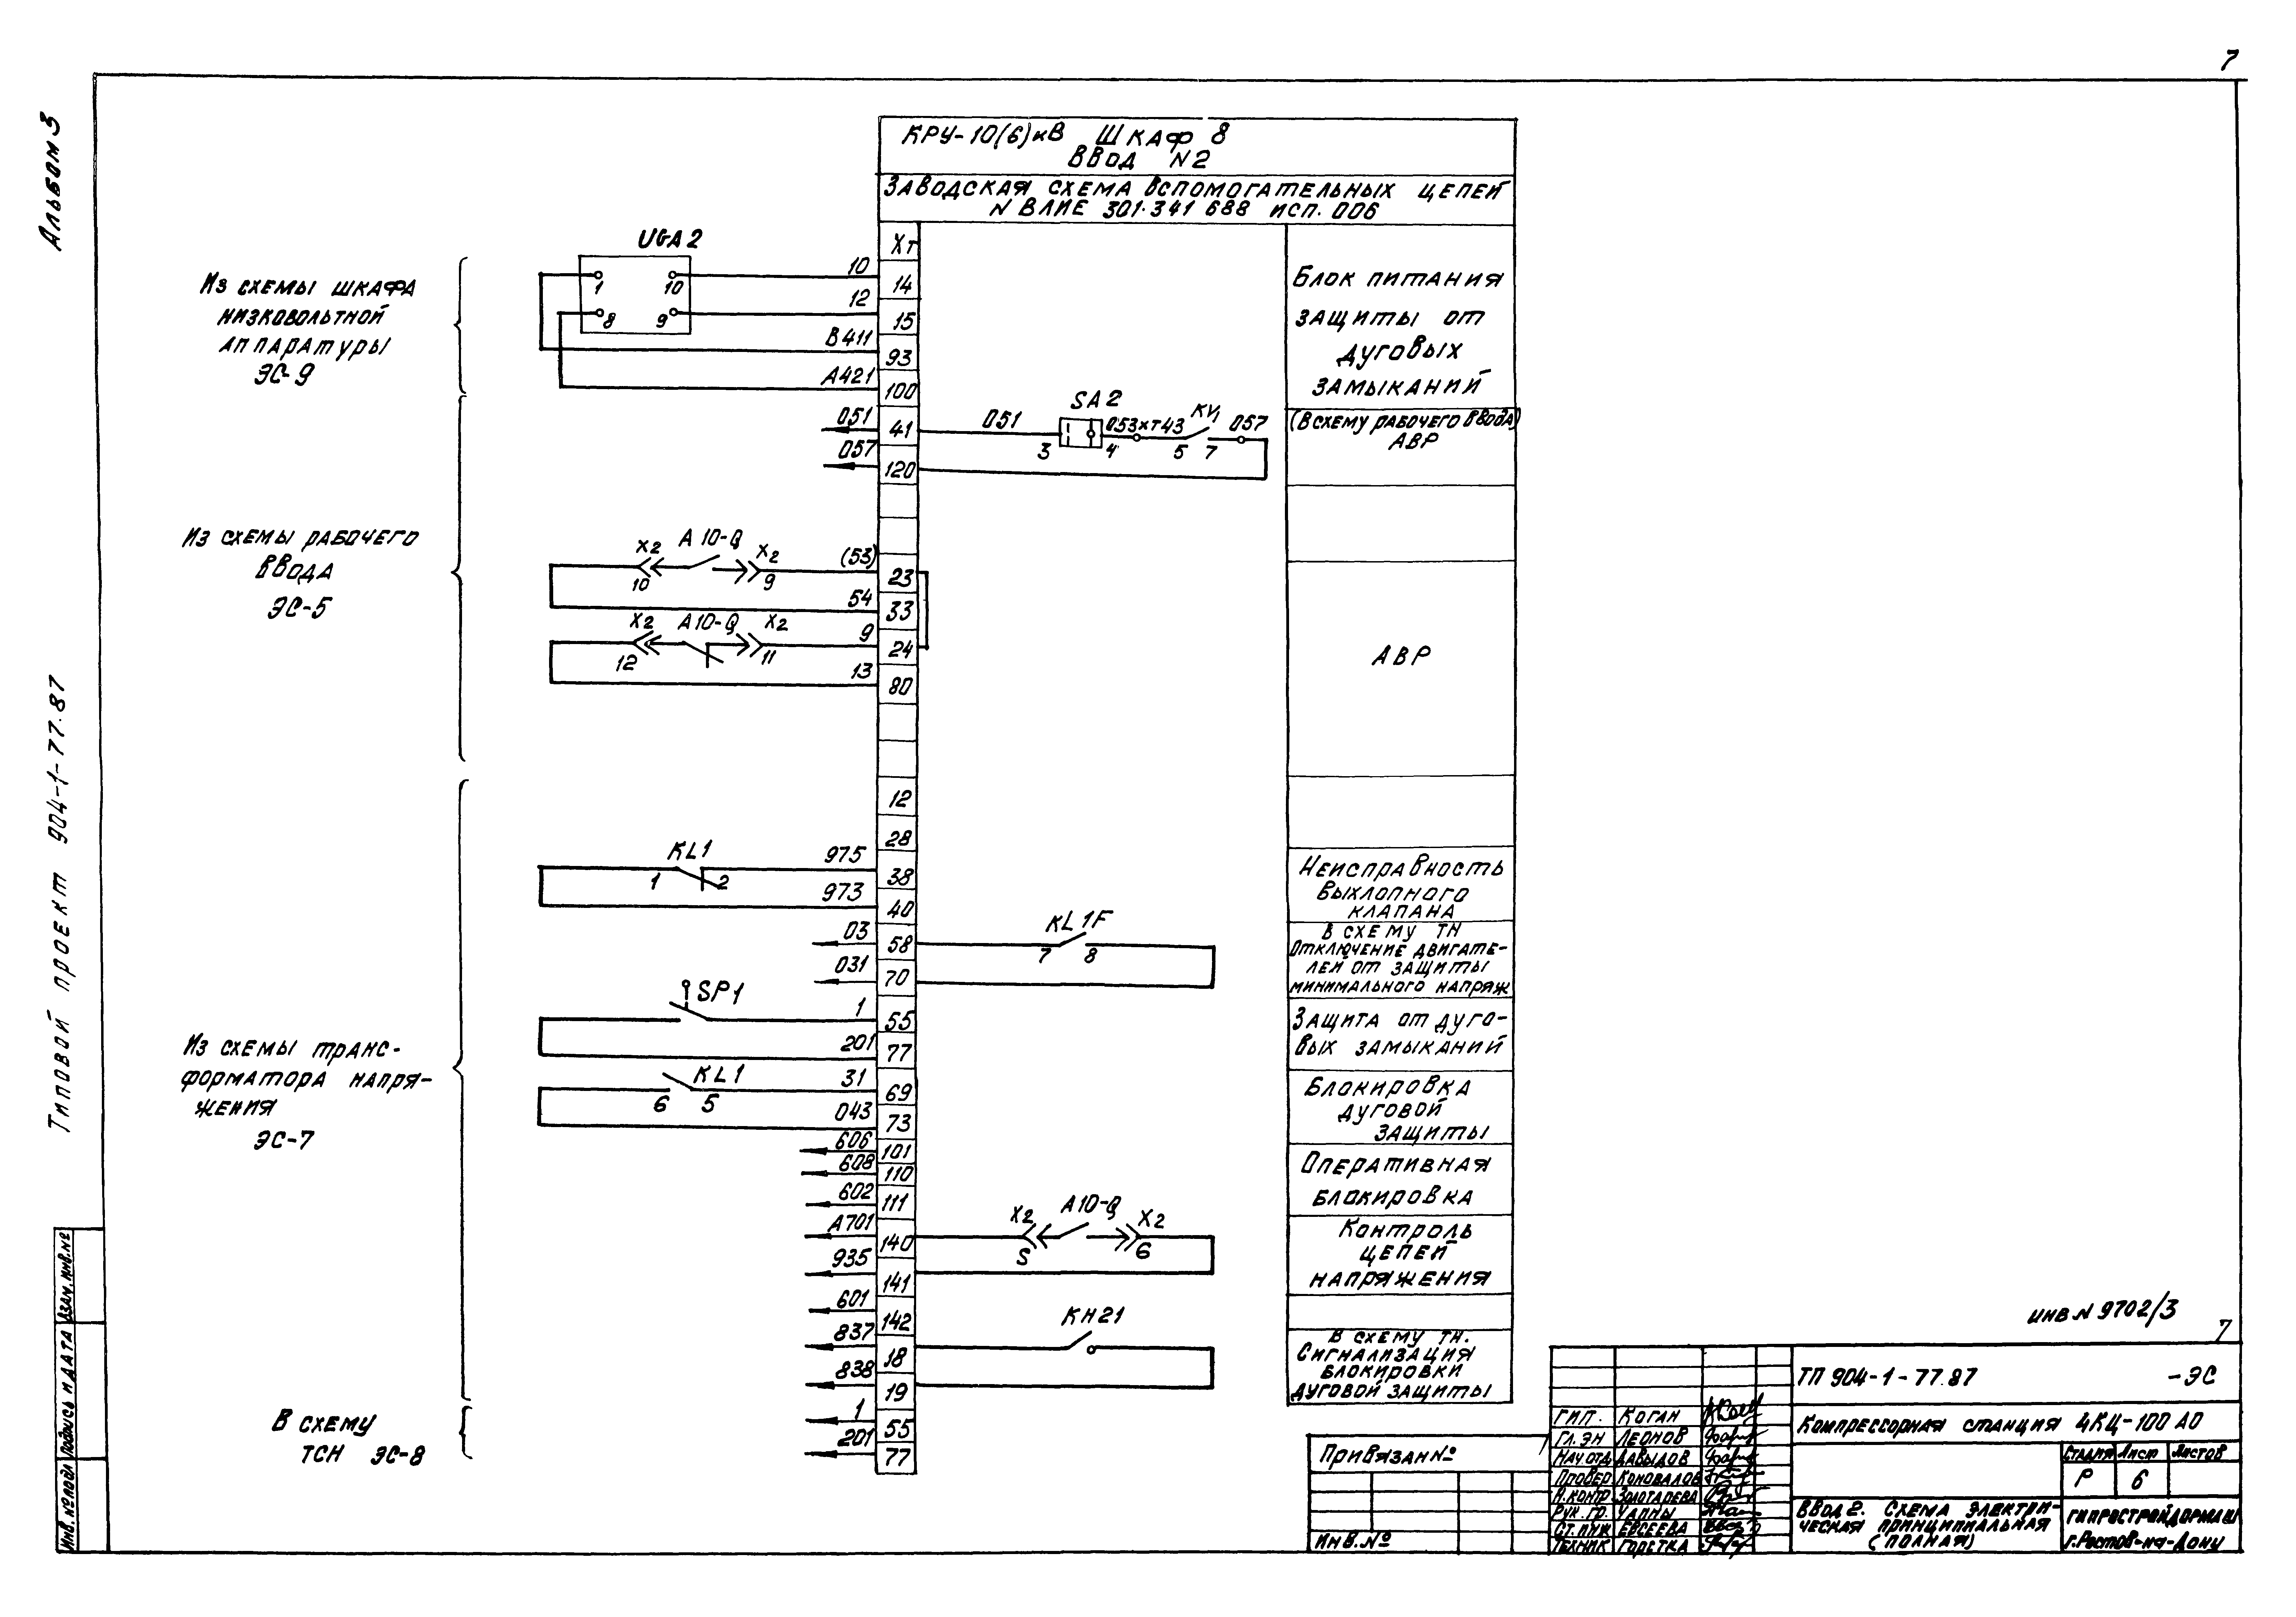 7
Альбом 3
Типовой проект 904-1-77.87
КРУ-10(6)кВ Шкаф 8
Ввод N2
Заводская схема вспомогательных цепей
N ВЛИЕ 301.341 688 исп. 006
Из схемы шкафа
низковольтной
аппаратуры
ЭС-9
Из схемы рабочего
ввода
ЭС-5
Из схемы транс-
форматора напря-
жения
ЭС-7
В схему
ТСН ЭС-8
UGA2
1 10
8 9
Хт
10 14
12 15
В411 93
А421 100
051 41
057 120
051 SA2 053 хт43 KV1 057
3 4 5 7
X2 A10-Q X2
10 9
(53) 23
54 33
X2 A10-Q X2
12 11
9 24
13 80
12
28
KL1
1 2
975 38
973 40
03 58
031 70
KL1F
7 8
SP1
1 55
201 77
KL1
6 5
31 69
043 73
606 101
608 110
602 111
А701 140
935 141
X2 A10-Q X2
5 6
601 142
837 18
838 19
КН21
1 55
201 77
Блок питания
защиты от
дуговых
замыканий
(В схему рабочего ввода)
АВР
АВР
Неисправность
выхлопного
клапана
В схему ТН
Отключение двигате-
лей от защиты
минимального напряж
Защита от дуго-
вых замыканий
Блокировка
дуговой
защиты
Оперативная
блокировка
Контроль
цепей
напряжения
В схему ТН.
Сигнализация
блокировки
дуговой защиты
инв N 9702/3
7
ТП 904-1-77.87 -ЭС
Компрессорная станция 4КЦ-100 АО
Стадия Лист Листов
Р 6
Ввод 2. Схема электри-
ческая принципиальная
(полная)
ГИПРОСТРОЙДОРМАШ
г. Ростов-на-Дону
ГИП. Коган
Гл. эн Леонов
Нач.отд Давыдов
Провер. Коновалов
Н.контр. Золотарева
Рук. гр. Чапны
Ст. инж Евсеева
Техник Горетка
Привязан №
Инв. №
Взам. инв. №
Подпись и дата
Инв. № подл